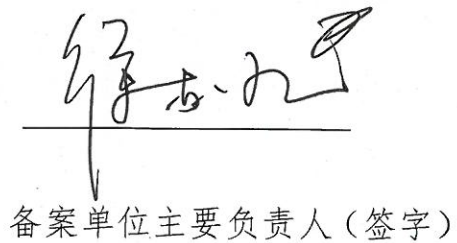 备案单位主要负责人（签字）